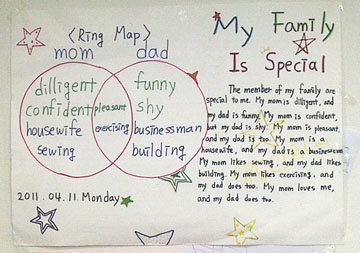 <Ring Map>
mom dad
dilligent
confident
housewife
sewing
pleasant
exercising
funny
shy
businessman
building
2011. 04. 11. Monday
My Family
Is Special
The member of my family are
special to me. My mom is dilligent, and
my dad is funny. My mom is confident,
but my dad is shy. My mom is pleasant,
and my dad is too. My mom is a
housewife, and my dad is a businessman.
My mom likes sewing, and my dad likes
building. My mom likes exercising, and
my dad does too. My mom loves me,
and my dad does too.